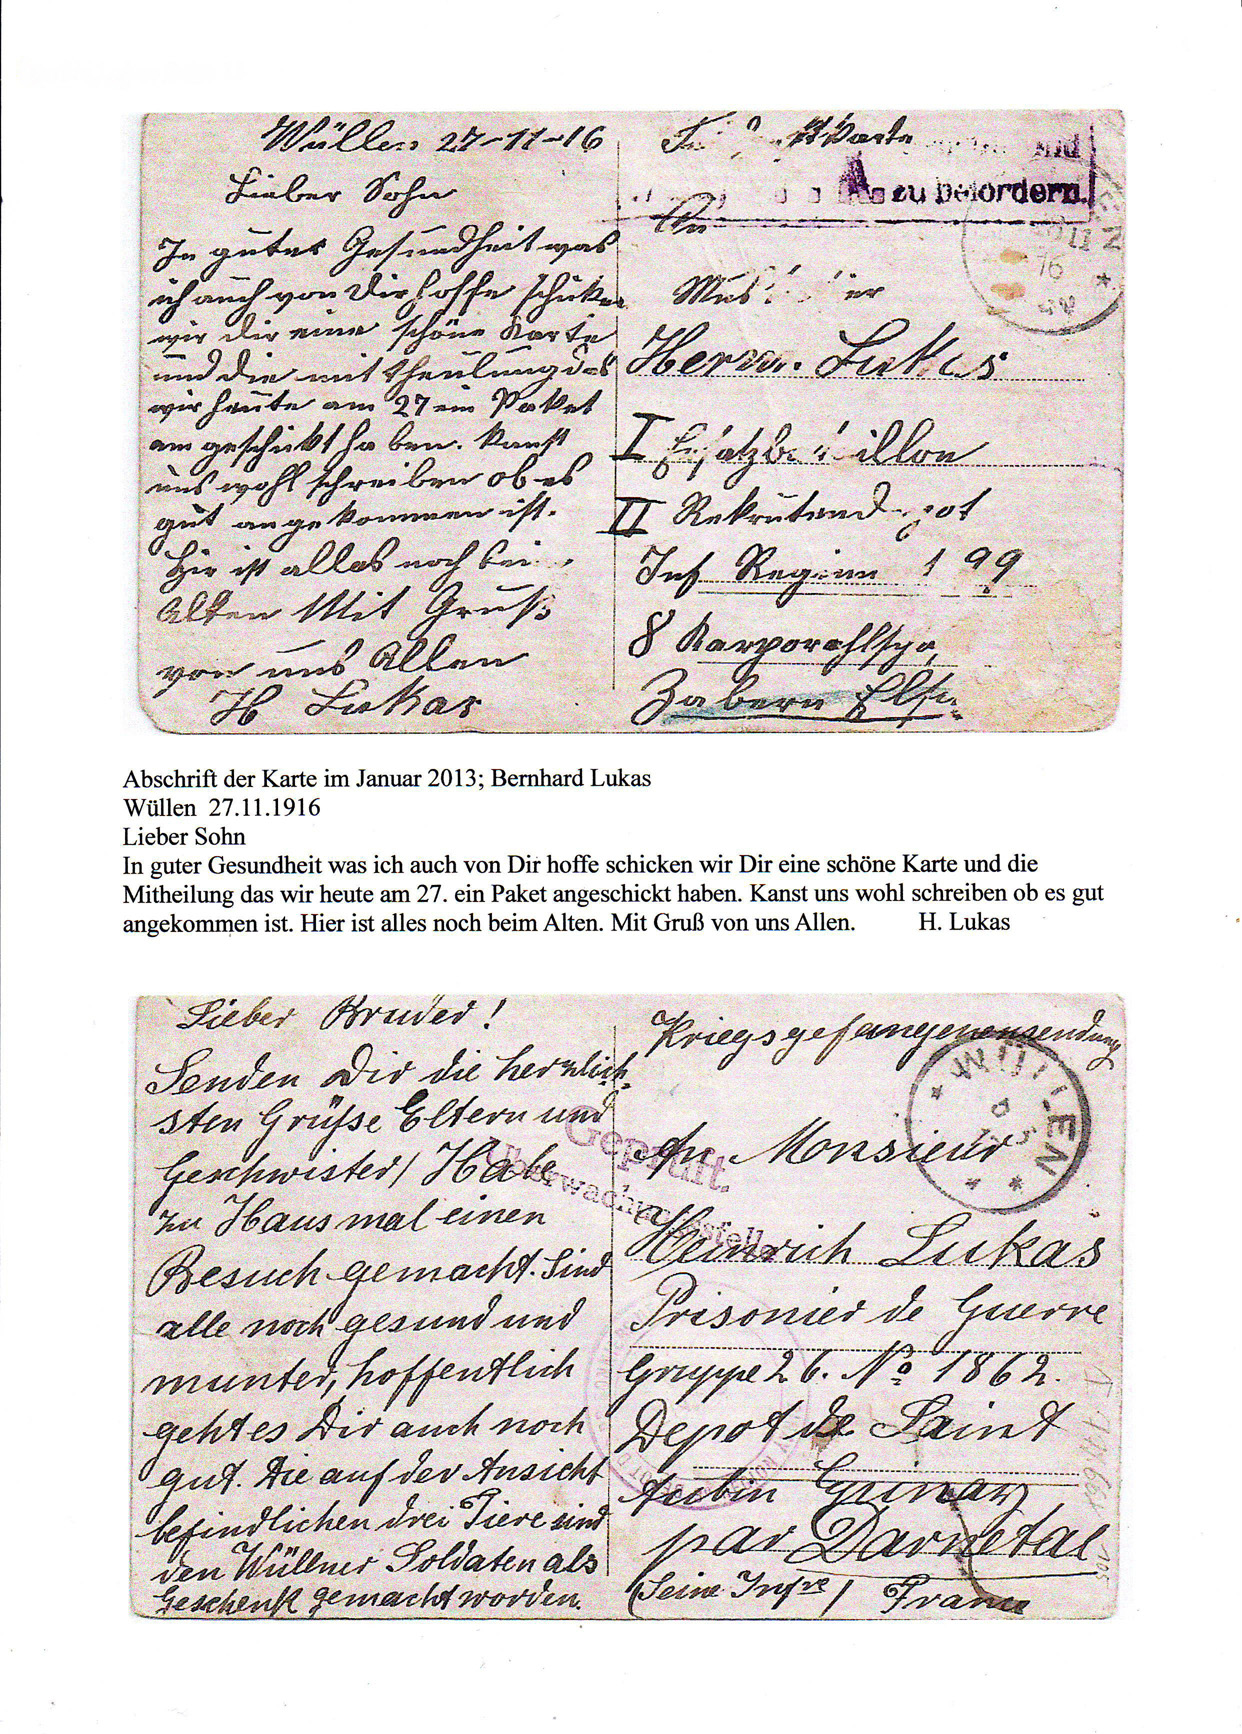 Wüllen 27-11-16
Lieber Sohn
In guter Gesundheit was
ich auch von Dir hoffe schicken
wir dir eine schöne Karte
und die mittheulung das
wir heute am 27 ein Paket
an geschickt haben. kanst
uns wohl schreiben ob es
gut angekommen ist.
Hir ist alles noch bei
Alten Mit Gruß
von uns Allen
H Lukas
Karte
zu befördern.
An
16
Herrn. Lukas
I Ersatzbataillon
II Rekrutendepot
Inf Regim 199
8 Karporahlspa,
Zabern Elsa.
Abschrift der Karte im Januar 2013; Bernhard Lukas
Wüllen 27.11.1916
Lieber Sohn
In guter Gesundheit was ich auch von Dir hoffe schicken wir Dir eine schöne Karte und die
Mitheilung das wir heute am 27. ein Paket angeschickt haben. Kanst uns wohl schreiben ob es gut
angekommen ist. Hier ist alles noch beim Alten. Mit Gruß von uns Allen. H. Lukas
Lieber Bruder!
Senden Dir die herzlich-
sten Grüße Eltern und
Geschwister/ Habe
zu Haus mal einen
Besuch gemacht. Sind
alle noch gesund und
munter, hoffentlich
geht es Dir auch noch
gut. Die auf der Ansicht
befindlichen drei Tiere sind
den Wüllner Soldaten als
Geschenk gemacht worden.
Geprüft.
Überwachungsstelle
Kriegsgefangenensendung
WÜLLEN
An Monsieur
Heinrich Lukas
Prisonier de Guerre
Gruppe 26. No 1862.
Depot de Saint
Aubin Epinay
par Darnetal
(Seine Infre) France